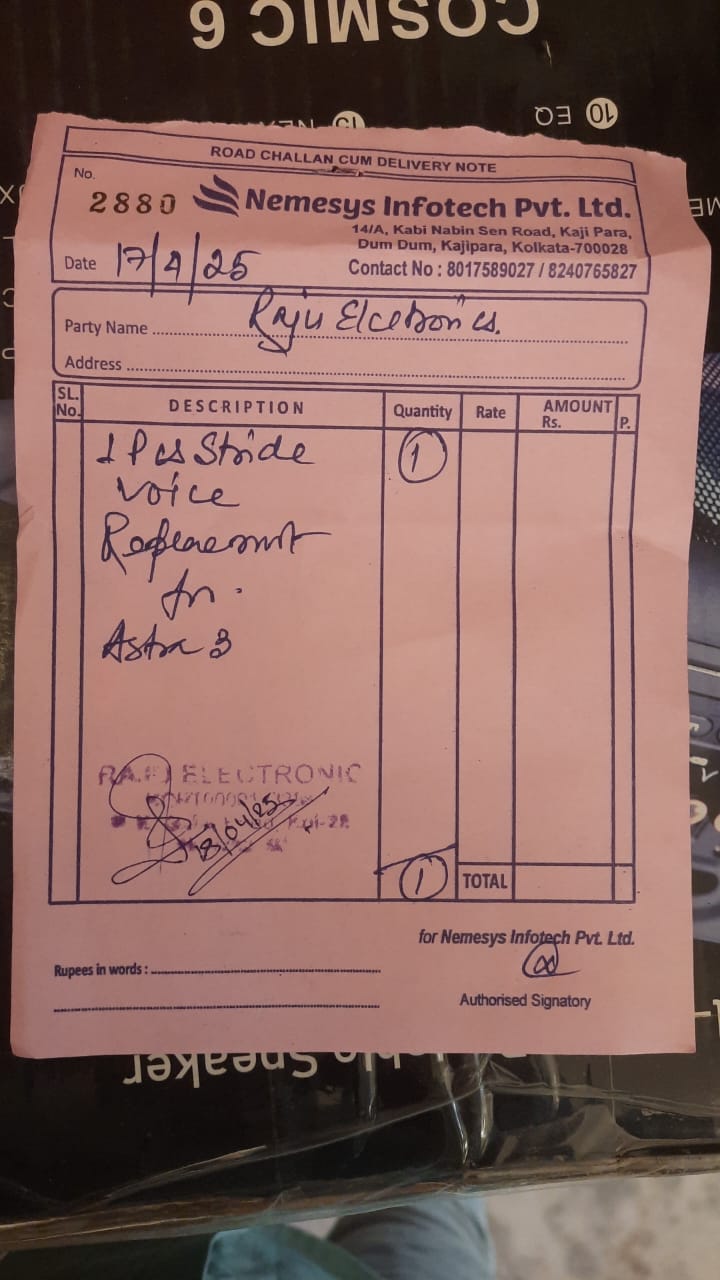 COSMIC 6
10 EQ
ROAD CHALLAN CUM DELIVERY NOTE
No.
2880
Nemesys Infotech Pvt. Ltd.
14/A, Kabi Nabin Sen Road, Kaji Para,
Dum Dum, Kajipara, Kolkata-700028
Date 17/4/25
Contact No : 8017589027 / 8240765827
Party Name Raju Elcetronics.
Address
SL. No. DESCRIPTION Quantity Rate AMOUNT Rs. P.
1 Pcs Stride 1
voice
Replacemnt
for
Astra 3
ELECTRONIC
Kol-28
18/04/25
1 TOTAL
for Nemesys Infotech Pvt. Ltd.
Rupees in words :
Authorised Signatory
Speaker